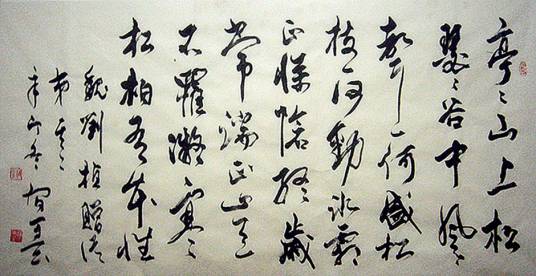 亭〻山上松
瑟〻谷中風〻
聲一何盛松
枝一何勁冰霜
正慘愴終歲
常端正豈
不羅凝寒
松柏有本性
魏劉楨贈從
弟其二
辛卯冬